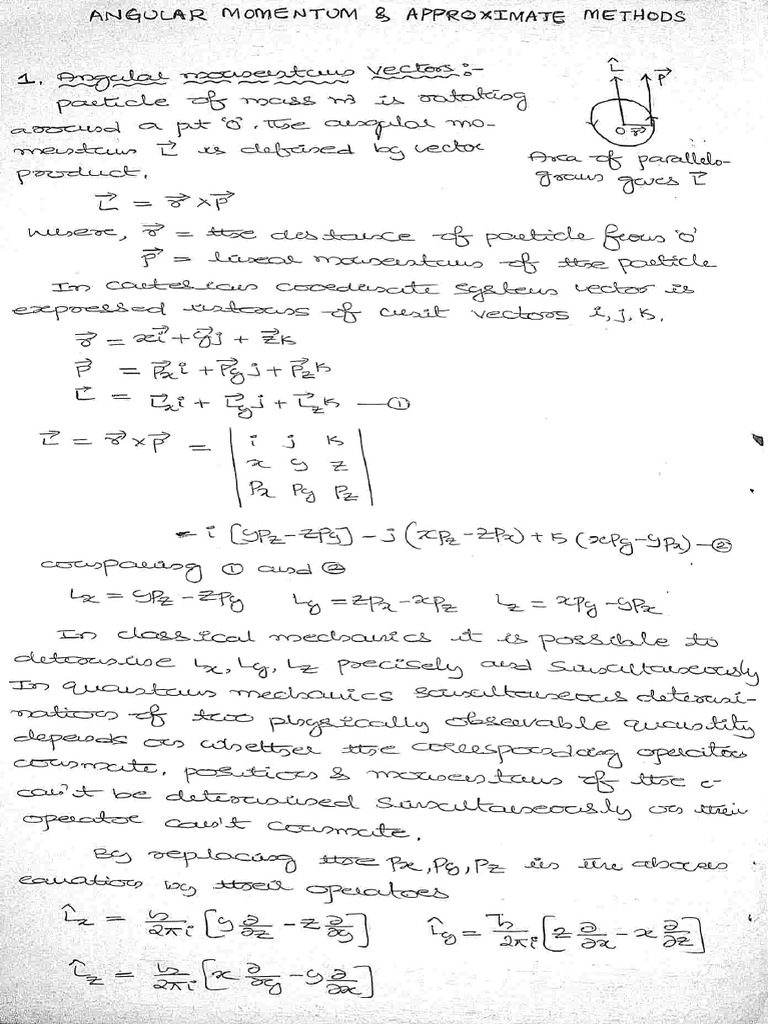 ANGULAR MOMENTUM & APPROXIMATE METHODS
1. Angular momentum vectors :-
particle of mass m is rotating
around a pt 'O'. The angular mo-
mentum L⃗ is defined by vector
product.
L̂ P⃗
O r⃗
Area of parallelo-
gram gives L⃗
L⃗ = r⃗ × P⃗
where, r⃗ = the distance of particle from 'O'
P⃗ = linear momentum of the particle
In cartesian coordinate system vector is
expressed interms of unit vectors i, j, k.
r⃗ = x⃗i + y⃗j + z⃗k
P⃗ = P⃗xi + P⃗yj + P⃗zk
L⃗ = L⃗xi + L⃗yj + L⃗zk —①
L⃗ = r⃗ × P⃗ = | i j k |
| x y z |
| Px Py Pz |
= i [yPz - zPy] - j (xPz - zPx) + k (xPy - yPx) —②
comparing ① and ②
Lx = yPz - zPy Ly = zPx - xPz Lz = xPy - yPx
In classical mechanics it is possible to
determine Lx, Ly, Lz precisely and simultaneously
In quantum mechanics simultaneous determi-
nation of two physically observable quantity
depends on whether the corresponding operators
commute. position & momentum of the e-
can't be determined simultaneously as their
operator can't commute.
By replacing the Px, Py, Pz in the above
equation by their operators
L̂x = h/2πi [y ∂/∂z - z ∂/∂y] L̂y = h/2πi [z ∂/∂x - x ∂/∂z]
L̂z = h/2πi [x ∂/∂y - y ∂/∂x]